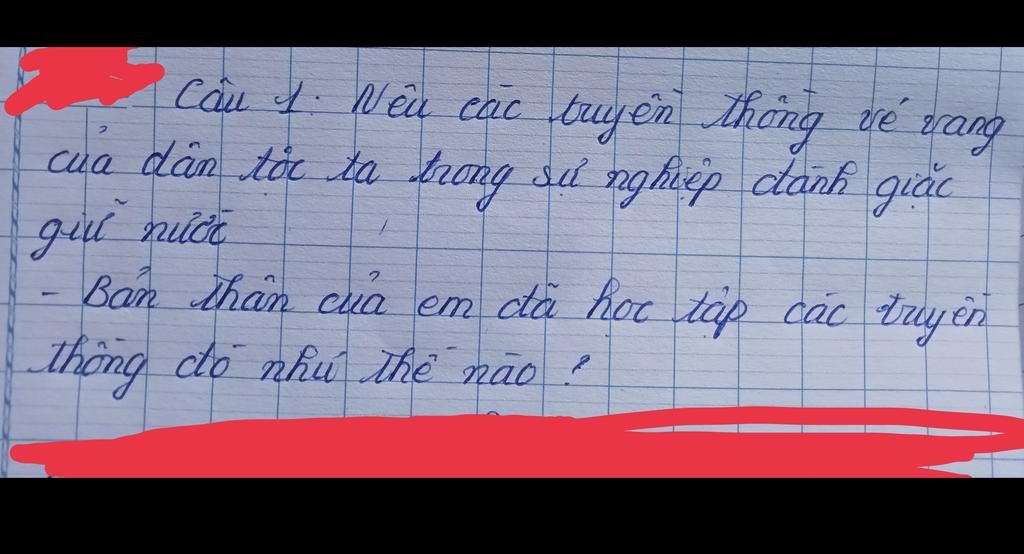 Câu 1. Nêu các truyền thống vẻ vang
của dân tộc ta trong sự nghiệp đánh giặc
giữ nước
- Bản thân của em đã học tập các truyền
thống đó như thế nào ?